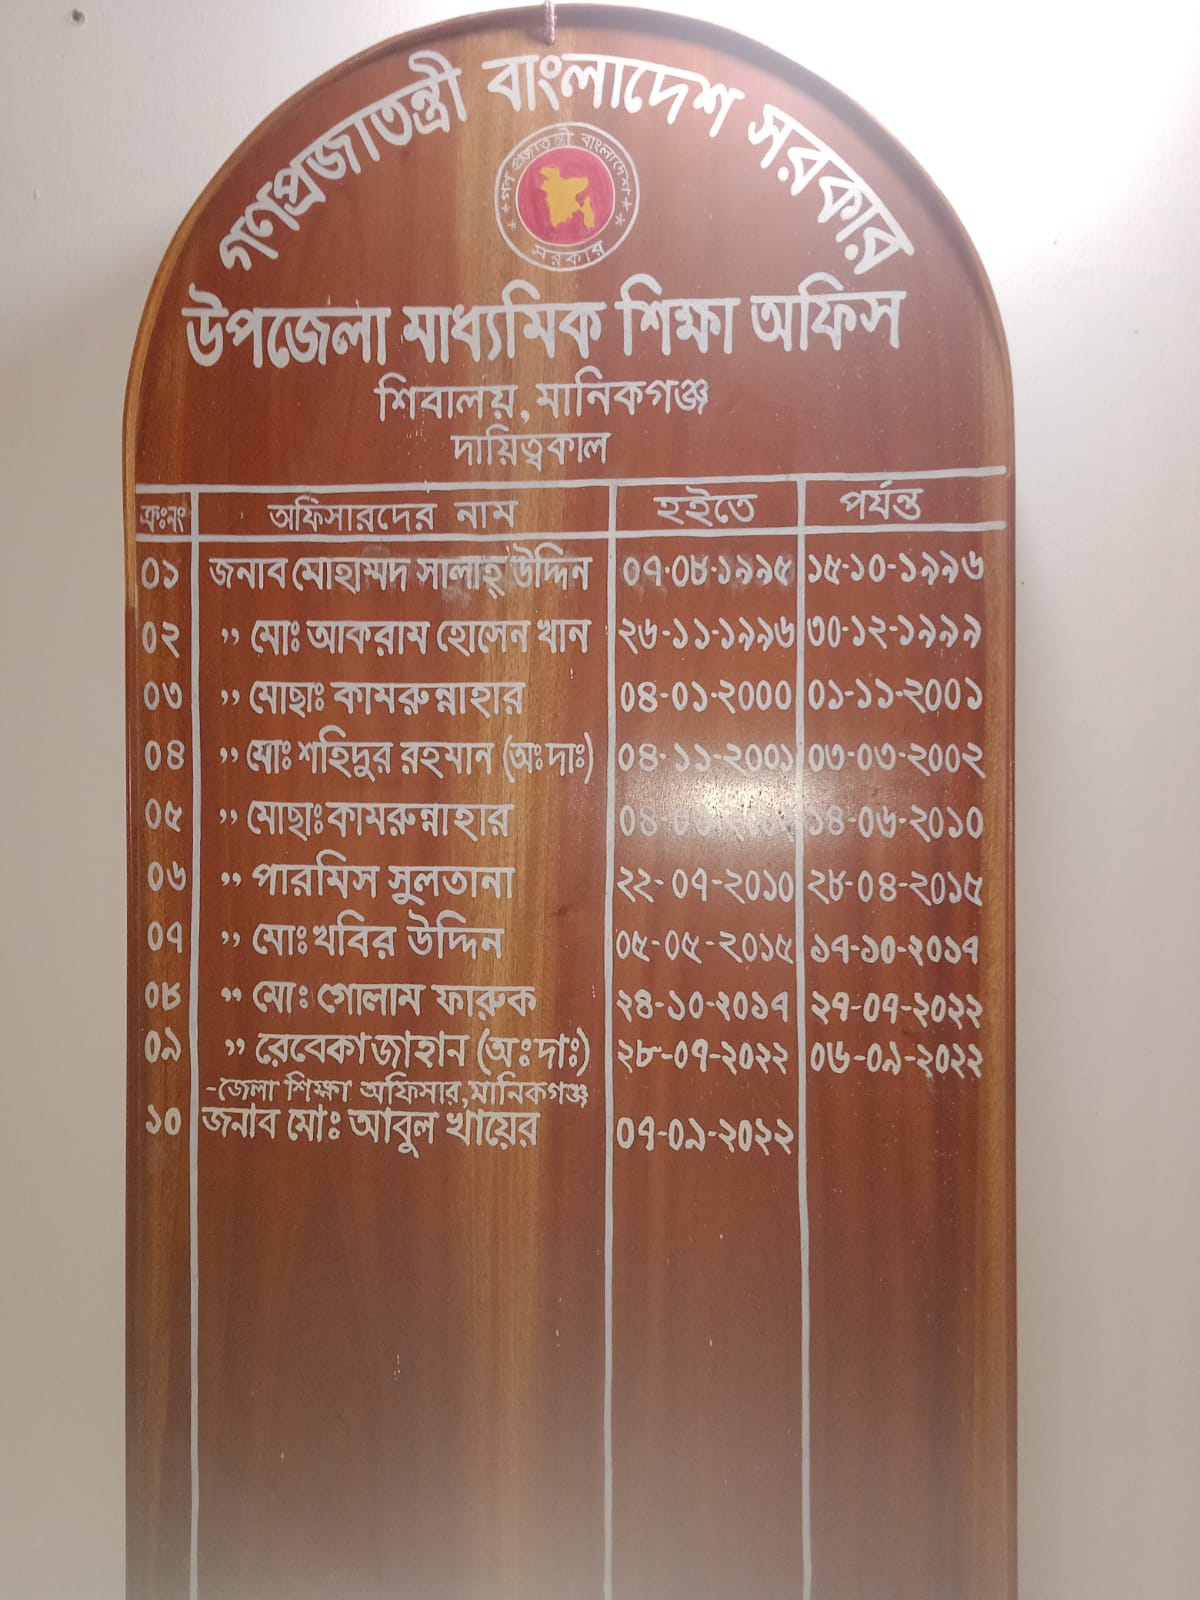 গণপ্রজাতন্ত্রী বাংলাদেশ সরকার
গণ প্রজাতন্ত্রী বাংলাদেশ
সরকার
উপজেলা মাধ্যমিক শিক্ষা অফিস
শিবালয়, মানিকগঞ্জ
দায়িত্বকাল
ক্রঃনং অফিসারদের নাম হইতে পর্যন্ত
০১ জনাব মোহাম্মদ সালাহ্ উদ্দিন ০৭-০৮-১৯৯৫ ১৫-১০-১৯৯৬
০২ ,, মোঃ আকরাম হোসেন খান ২৬-১১-১৯৯৬ ৩০-১২-১৯৯৯
০৩ ,, মোছাঃ কামরুন্নাহার ০৪-০১-২০০০ ০১-১১-২০০১
০৪ ,, মোঃ শহিদুর রহমান (অঃ দাঃ) ০৪-১১-২০০১ ০৩-০৩-২০০২
০৫ ,, মোছাঃ কামরুন্নাহার ১৪-০৬-২০১০
০৬ ,, পারমিস সুলতানা ২২-০৭-২০১০ ২৮-০৪-২০১৫
০৭ ,, মোঃ খবির উদ্দিন ০৫-০৫-২০১৫ ১৭-১০-২০১৭
০৮ ,, মো: গোলাম ফারুক ২৪-১০-২০১৭ ২৭-০৭-২০২২
০৯ ,, রেবেকা জাহান (অঃ দাঃ) ২৮-০৭-২০২২ ০৬-০৯-২০২২
-জেলা শিক্ষা অফিসার, মানিকগঞ্জ
১০ জনাব মোঃ আবুল খায়ের ০৭-০৯-২০২২